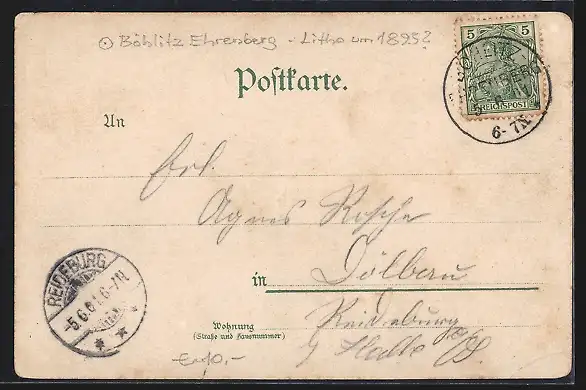 ⊙ Böhlitz Ehrenberg - Litho um 1895?
5 5
REICHSPOST
6-7N.
Postkarte.
An
Frl.
Agnes Rosche
in Dölbau
REIDEBURG
-5.6.01.6-7N.
* *
Wohnung
(Straße und Hausnummer)
Reideburg
Halle